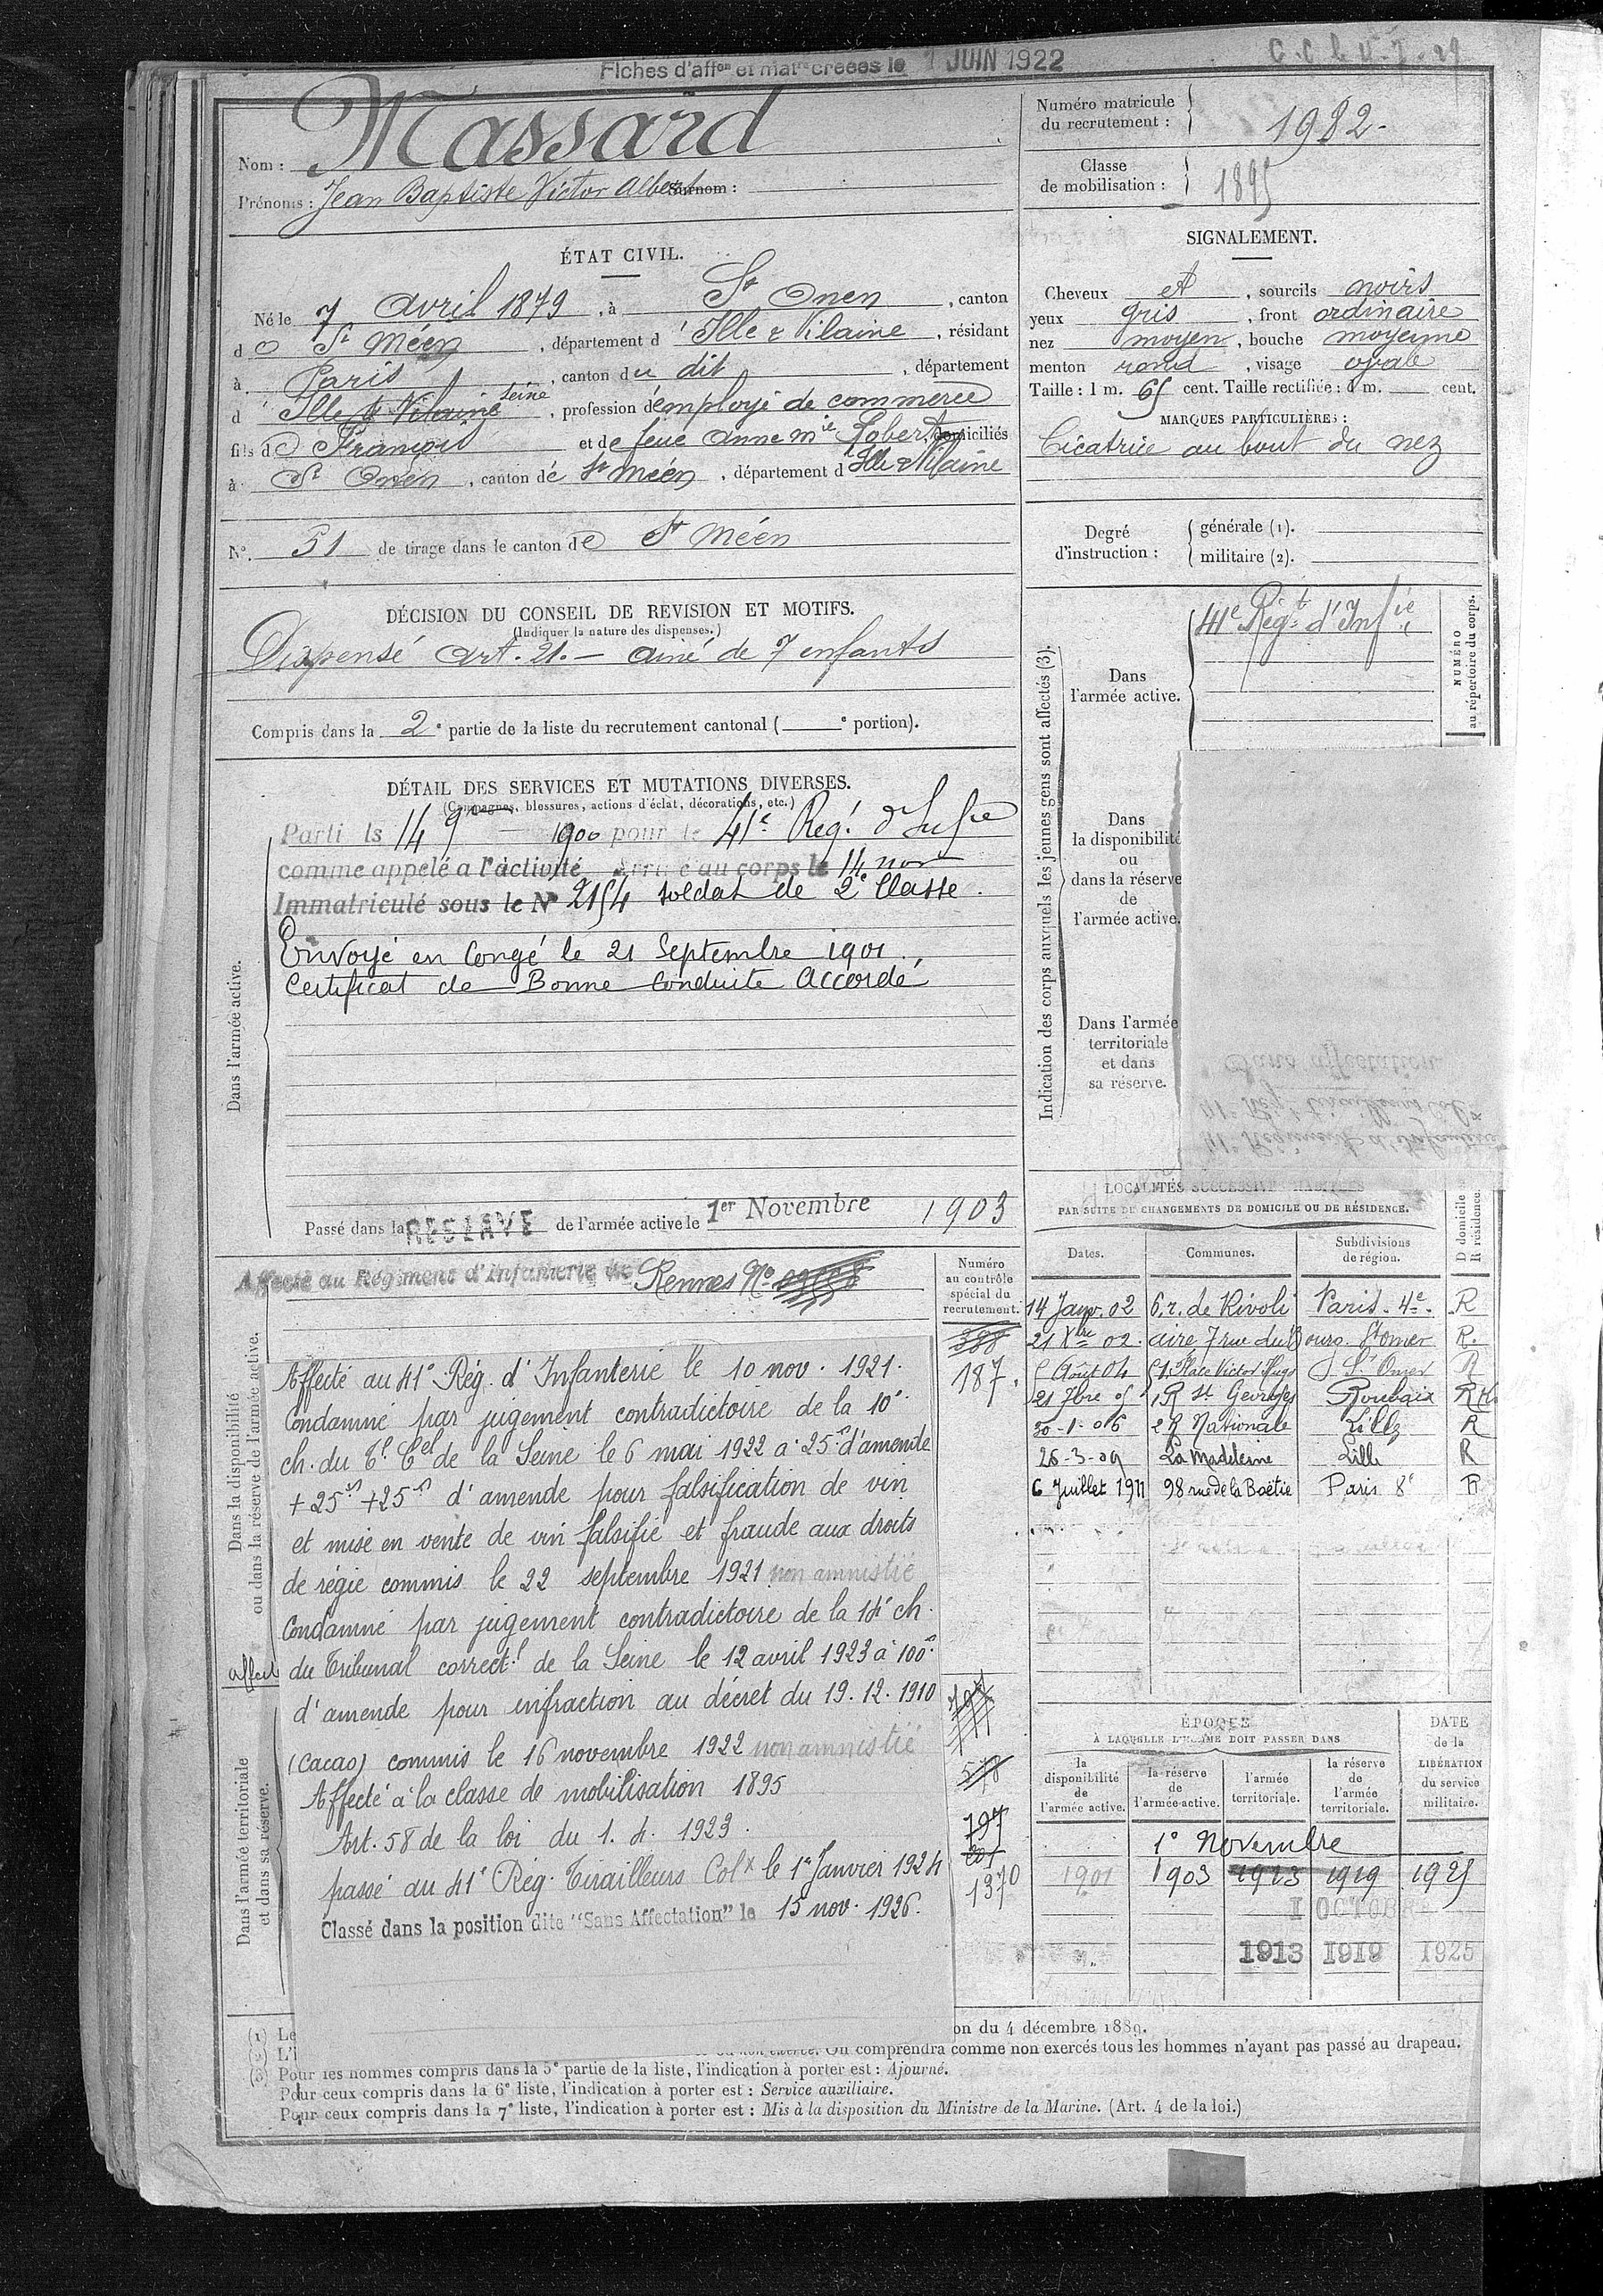 Fiches d'aff^on et mat^re créées le 1 JUIN 1922
Nom : Massard
Prénoms : Jean Baptiste Victor Albert Surnom :
Numéro matricule du recrutement : 1982.
Classe de mobilisation : 1895
ÉTAT CIVIL.
Né le 7 Avril 1879, à St Onen, canton
de St Méen, département d'Ille & Vilaine, résidant
à Paris, canton du dit, département
d' Ille & Vilaine Seine, profession d'employé de commerce
fils de François et de feue Anne Mie Robert, domiciliés
à St Onen, canton de St Méen, département d'Ille & Vilaine
N° 51 de tirage dans le canton de St Méen
SIGNALEMENT.
Cheveux et, sourcils noirs
yeux gris, front ordinaire
nez moyen, bouche moyenne
menton rond, visage ovale
Taille : 1 m. 65 cent. Taille rectifiée : 1 m. cent.
MARQUES PARTICULIÈRES :
Cicatrice au bout du nez
Degré d'instruction :
générale (1).
militaire (2).
DÉCISION DU CONSEIL DE REVISION ET MOTIFS.
(Indiquer la nature des dispenses.)
Dispensé Art. 21. — ainé de 7 enfants
Compris dans la 2e partie de la liste du recrutement cantonal ( e portion).
DÉTAIL DES SERVICES ET MUTATIONS DIVERSES.
(Campagnes, blessures, actions d'éclat, décorations, etc.)
Dans l'armée active.
Parti le 14 9bre 1900 pour le 41e Rég. d'Infie
comme appelé a l'activité Arrivé au corps le 14 nov
Immatriculé sous le N° 2154 soldat de 2e Classe.
Envoyé en Congé le 21 Septembre 1901.
Certificat de Bonne Conduite Accordé
Passé dans la RESERVE de l'armée active le 1er Novembre 1903
Indication des corps auxquels les jeunes gens sont affectés (3).
NUMÉRO au répertoire du corps.
Dans l'armée active.
41e Régt d'Infie
Dans la disponibilité ou dans la réserve de l'armée active.
Dans l'armée territoriale et dans sa réserve.
Dans la disponibilité ou dans la réserve de l'armée active.
Affecté au Régiment d'Infanterie de Rennes No
Numéro au contrôle spécial du recrutement.
388
187.
Affecté au 41e Rég. d'Infanterie le 10 nov. 1921.
Condamné par jugement contradictoire de la 10e
ch. du Tl Cel de la Seine le 6 mai 1922 à 25 fs d'amende
+ 25 fs + 25 fs d'amende pour falsification de vin
et mise en vente de vin falsifié et fraude aux droits
de régie commis le 22 septembre 1921 non amnistié
Condamné par jugement contradictoire de la 14e ch.
du Tribunal correctl de la Seine le 12 avril 1923 à 100 fs
d'amende pour infraction au décret du 19.12.1910
(cacao) commis le 16 novembre 1922 non amnistié
Affecté à la classe de mobilisation 1895
Art. 58 de la loi du 1.4.1923.
passé au 41e Rég. Tirailleurs Colx le 1er Janvier 1924
Classé dans la position dite "Sans Affectation" le 15 nov. 1926.
Dans l'armée territoriale et dans sa réserve.
affect
578
797
1370
LOCALITÉS SUCCESSIVES HABITÉES
PAR SUITE DE CHANGEMENTS DE DOMICILE OU DE RÉSIDENCE.
Dates. Communes. Subdivisions de région. D domicile R résidence.
14 Janv. 02 6, r. de Rivoli Paris. 4e. R
21 Xbre 02. aire 7 rue du Bourg. St Omer R.
5 Août 04 51, Place Victor Hugo St Omer R
21 7bre 05 1 R St Georges Roubaix R
30-1-06 2 R Nationale Lille R
26-3-09 La Madeleine Lille R
6 Juillet 1911 98 rue de la Boëtie Paris 8e R
ÉPOQUE
À LAQUELLE L'HOMME DOIT PASSER DANS
DATE de la LIBÉRATION du service militaire.
la disponibilité de l'armée active. la réserve de l'armée active. l'armée territoriale. la réserve de l'armée territoriale.
1er Novembre
1901 1903 1913 1919 1925
1 OCTOBRE
1913 1919 1925
(1) Le
on du 4 décembre 1889.
(2) L'i
On comprendra comme non exercés tous les hommes n'ayant pas passé au drapeau.
(3) Pour les hommes compris dans la 5e partie de la liste, l'indication à porter est : Ajourné.
Pour ceux compris dans la 6e liste, l'indication à porter est : Service auxiliaire.
Pour ceux compris dans la 7e liste, l'indication à porter est : Mis à la disposition du Ministre de la Marine. (Art. 4 de la loi.)